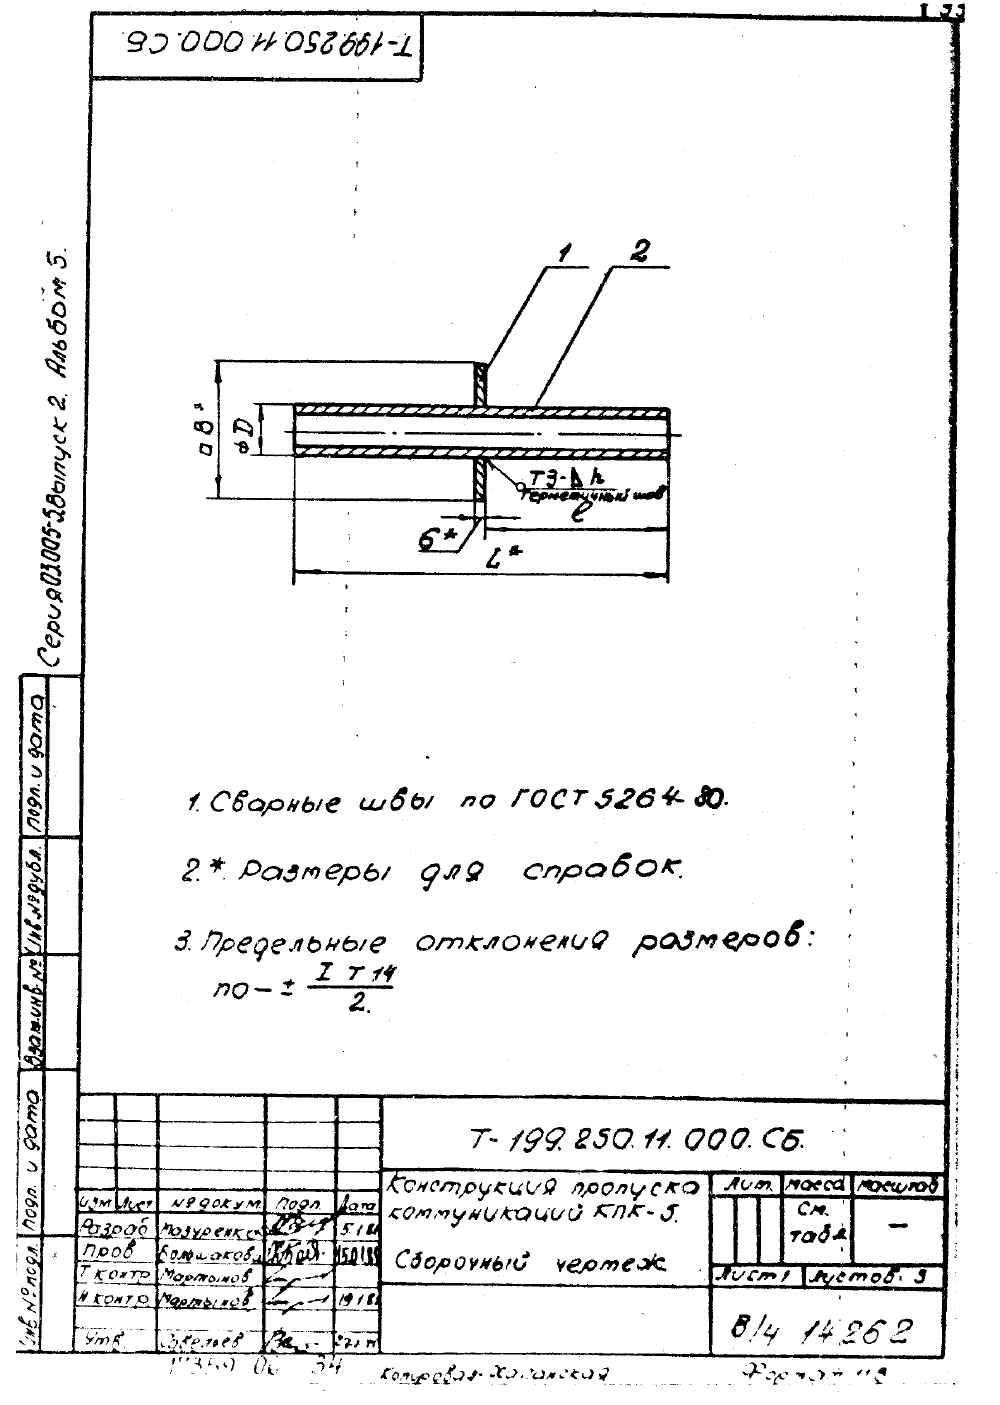 Т-199.250.11.000.СБ.
Серия 03.005-5 Выпуск 2. Альбом 5.
1 2
□ В*
⌀D
Т3-⊿ h
герметичный шов
б*
ℓ
L*
1. Сварные швы по ГОСТ 5264-80.
2.*. Размеры для справок.
3. Предельные отклонения размеров:
по – ± IT14
2.
Подп. и дата
Инв.№ дубл.
Взам.инв.№
Подп. и дата
Инв.№ подл.
Т-199.250.11.000.СБ.
Изм Лист № докум. Подп. Дата
Разраб
Пров
Т контр Мартынов
Н контр Мартынов
Утв Савельев
Конструкция пропуска
коммуникаций КПК-5.
Сборочный чертеж
Лит. Масса Масштаб
См.
табл —
Лист 1 Листов: 3
В/ч 14262
Копировал-
Формат